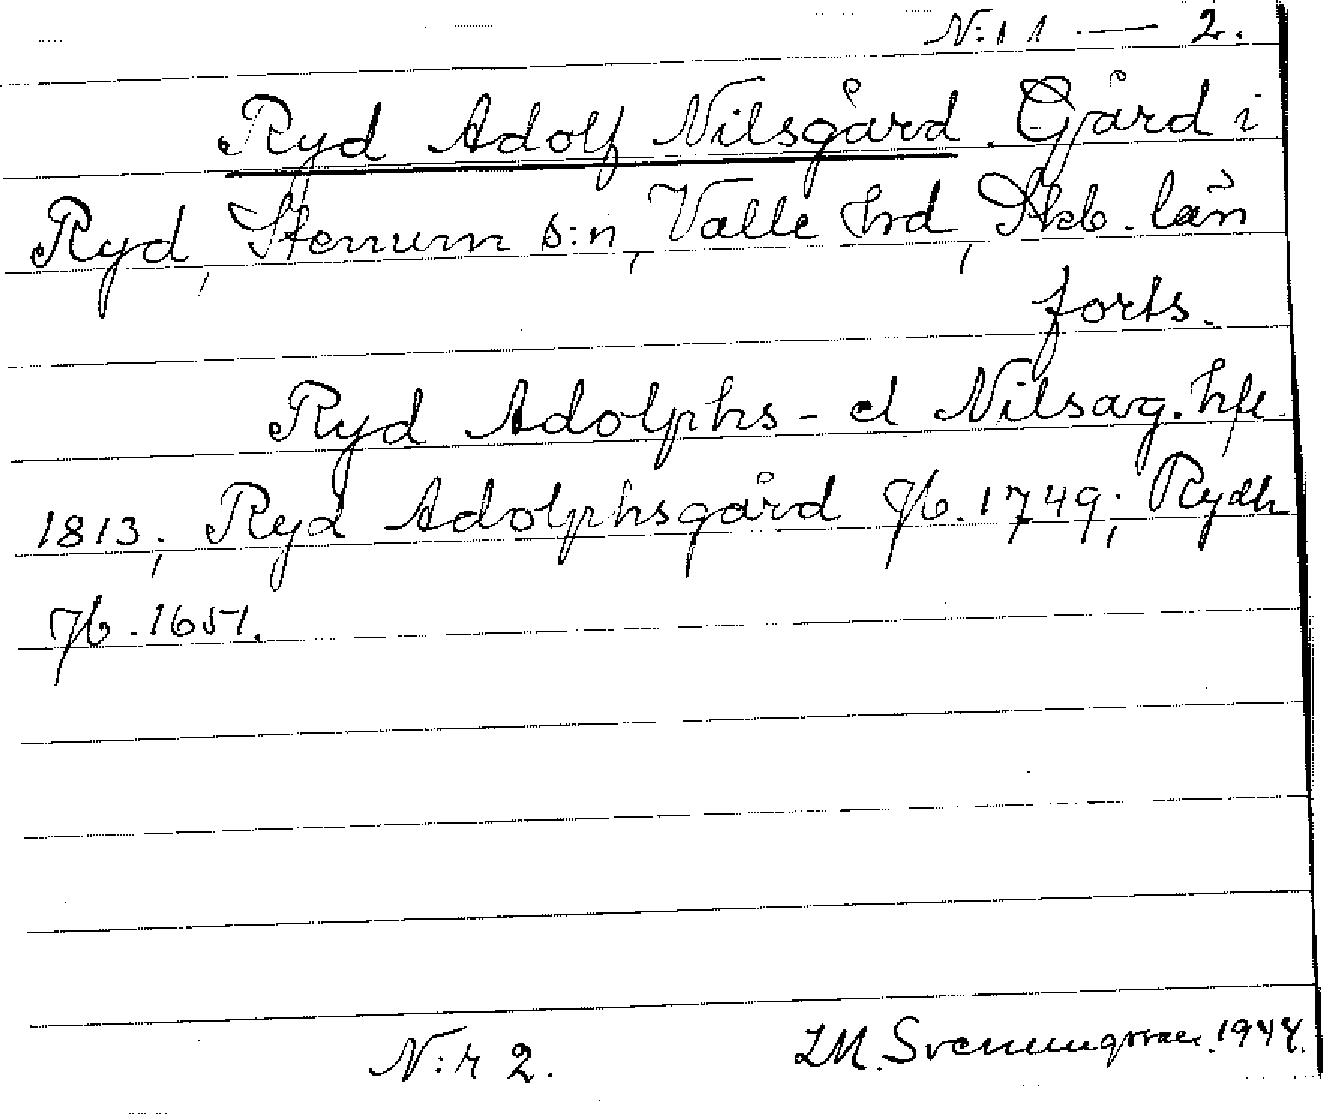 N:r 1 — 2.
Ryd Adolf Nilsgård. Gård i
Ryd, Stenum s:n, Valle hrd, Skb. län
forts.
Ryd Adolphs- el Nilsarg. hfl
1813; Ryd Adolphsgård Jb. 1749; Rydh
Jb. 1651.
N:r 2. I.M. Svenungsson. 1944.